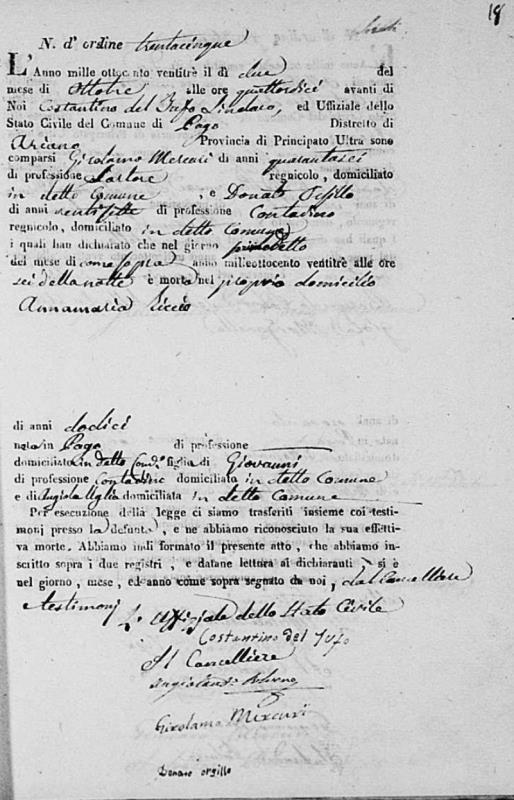 18
N. d'ordine trentacinque
L'Anno mille ottocento ventitrè il dì due del
mese di Ottobre alle ore quattordici avanti di
Noi Costantino del Jufo Sindaco, ed Uffiziale dello
Stato Civile del Comune di Pago Distretto di
Ariano Provincia di Principato Ultra sono
comparsi Girolamo Mercuri di anni quarantasei
di professione Sartore regnicolo, domiciliato
in detto Comune, e Donato
di anni ventisette di professione Contadino
regnicolo, domiciliato in detto Comune
i quali han dichiarato che nel giorno
del mese di come sopra anno milleottocento ventitrè alle ore
sei della notte è morta nel proprio domicilio
Annamaria Riccio
di anni dodici
nata in Pago di professione
domiciliata in detto Com.e figlia di Giovanni
di professione Contadino domiciliato in detto Comune
e di Angiola Uglia domiciliata in detto Comune
Per esecuzione della legge ci siamo trasferiti insieme coi testi-
monj presso la defunta, e ne abbiamo riconosciuto la sua effetti-
va morte. Abbiamo indi formato il presente atto, che abbiamo in-
scritto sopra i due registri, e datane lettura ai dichiaranti si è
nel giorno, mese, ed anno come sopra segnato da noi, dal Cancelliere
testimonj
L'Uffiziale dello Stato Civile
Costantino del Jufo
Il Cancelliere
Girolamo Mercuri
Donato orsillo